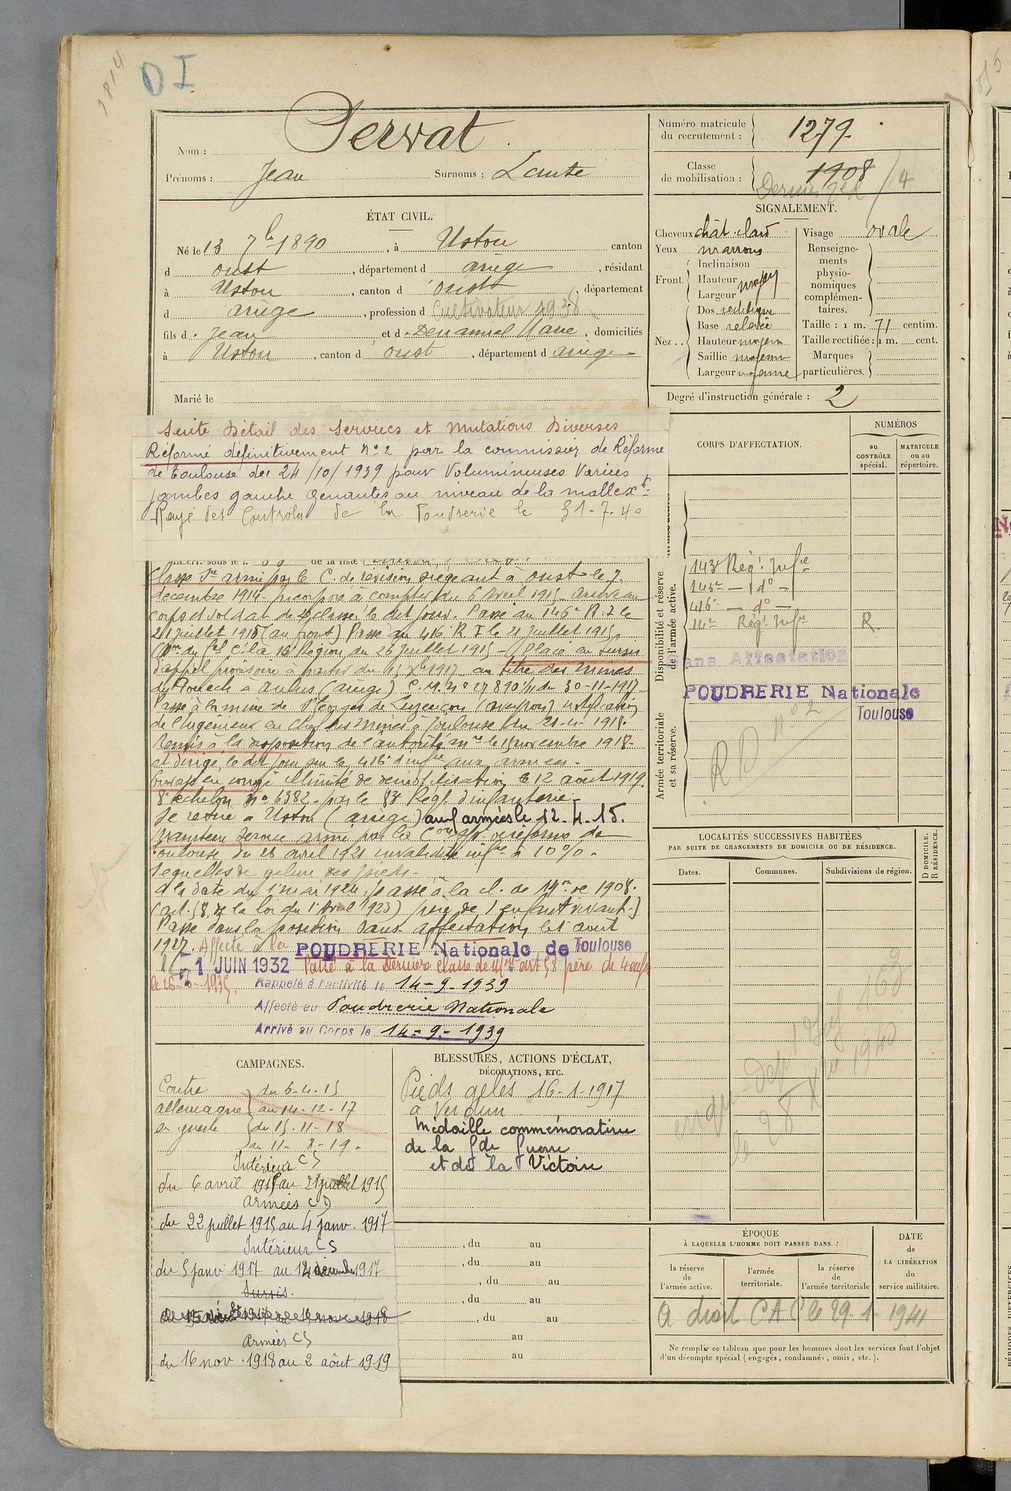 1814
DI
Nom : Servat
Prénoms : Jean Surnoms :
Numéro matricule du recrutement : 1279
Classe de mobilisation : 1908
ÉTAT CIVIL.
Né le 13 7bre 1890, à Ustou canton
d oust, département d ariège, résidant
à Ustou, canton d oust, département
d ariège, profession d Cultivateur 1938
fils d Jean et d domiciliés
à Ustou, canton d oust, département d ariège
Marié le
SIGNALEMENT.
Cheveux chât. clair Visage ovale
Yeux marrons
Front. Inclinaison
Hauteur moy
Largeur
Nez Dos rectiligne
Base relevée
Hauteur moyenne
Saillie moyenne
Largeur moyenne
Renseignements physionomiques complémentaires.
Taille : 1 m. 71 centim.
Taille rectifiée : 1 m. cent.
Marques particulières.
Degré d'instruction générale : 2
Suite Détail des Services et Mutations Diverses
Réformé définitivement n° 2 par la commission de Réforme
de Toulouse du 24/10/1939 pour Volumineuses Varices
jambes gauche genantes au niveau de la
Rayé des Contrôles de la Poudrerie le 31-7-40
Classé Sce armé par le C. de révision siégeant à oust le 7
décembre 1914. Incorporé à compter du 6 avril 1915. arrivé au
corps et soldat de 2e classe le dit jour. Passé au 145e R.I. le
21 juillet 1915 (au front) Passé au 416e R I le 21 juillet 1915.
Placé en sursis
d'appel provisoire à partir du 15 Xbre 1917 au titre des Mines
du Pouech à Aulus (ariège) 30-11-1917.
Passé à la mine de St Georges de Luzençon (aveyron) Notification
de l'ingénieur en chef des Mines à Toulouse du 21-4-1918.
Remis à la disposition de l'autorité mre le 15 novembre 1918.
et dirigé le dit jour sur le 416e d'infie aux armées.
Envoyé en congé illimité de démobilisation le 12 août 1919.
8e échelon n° 6382. par le 83e Régt d'infanterie.
Se retire à Ustou (ariège) aux armées le 12.4.15.
Maintenu service armé par la Con de réforme de
Toulouse du 28 avril 1921 invalidité infre à 10%.
Sequelles de gelure des pieds.
A la date du 1er mai 1924, passé à la cl. de mon de 1908.
(art. 58 de la loi du 1er avril 1923) père de 1 enfant vivant.
Passé dans la position sans affectation le 1 avril
1927. Affecté à la POUDRERIE Nationale de Toulouse
1 JUIN 1932 Passé à la Dernière classe de Mon art 58 père de 4 enfts
Rappelé à l'activité le 14-9-1939
Affecté au Poudrerie Nationale
Arrivé au Corps le 14-9-1939
CORPS D'AFFECTATION.
NUMÉROS
au CONTRÔLE spécial.
MATRICULE ou au répertoire.
Disponibilité et réserve de l'armée active.
143e Régt Infie
145e — do —
416e — do —
14e Régt Infie R.
Sans Affectation
POUDRERIE Nationale
Toulouse
Armée territoriale et sa réserve.
RD n° 2
LOCALITÉS SUCCESSIVES HABITÉES
PAR SUITE DE CHANGEMENTS DE DOMICILE OU DE RÉSIDENCE.
Dates. Communes. Subdivisions de région. D DOMICILE. R RÉSIDENCE.
CAMPAGNES.
Contre du 6-4-15
allemagne au 14-12-17
en guerre du 15-11-18
Intérieur CS
du 6 avril 1915 au 21 juillet 1915
Armées CD
du 22 juillet 1915 au 4 janv. 1917
Intérieur CS
du 5 janv 1917 au 14 décembre 1917
Sursis.
Armées CS
du 16 nov 1918 au 2 août 1919
BLESSURES, ACTIONS D'ÉCLAT,
DÉCORATIONS, ETC.
Pieds gelés 16-1-1917
à Verdun
Médaille commémorative
de la Gde Guerre
et de la Victoire
, du au
, du au
, du au
, du au
, du au
au
au
ÉPOQUE
À LAQUELLE L'HOMME DOIT PASSER DANS :
la réserve de l'armée active.
l'armée territoriale.
la réserve de l'armée territoriale
DATE de LA LIBÉRATION du service militaire.
A droit CAC le 29.1.1941
Ne remplir ce tableau que pour les hommes dont les services font l'objet
d'un décompte spécial (engagés, condamnés, omis, etc.).